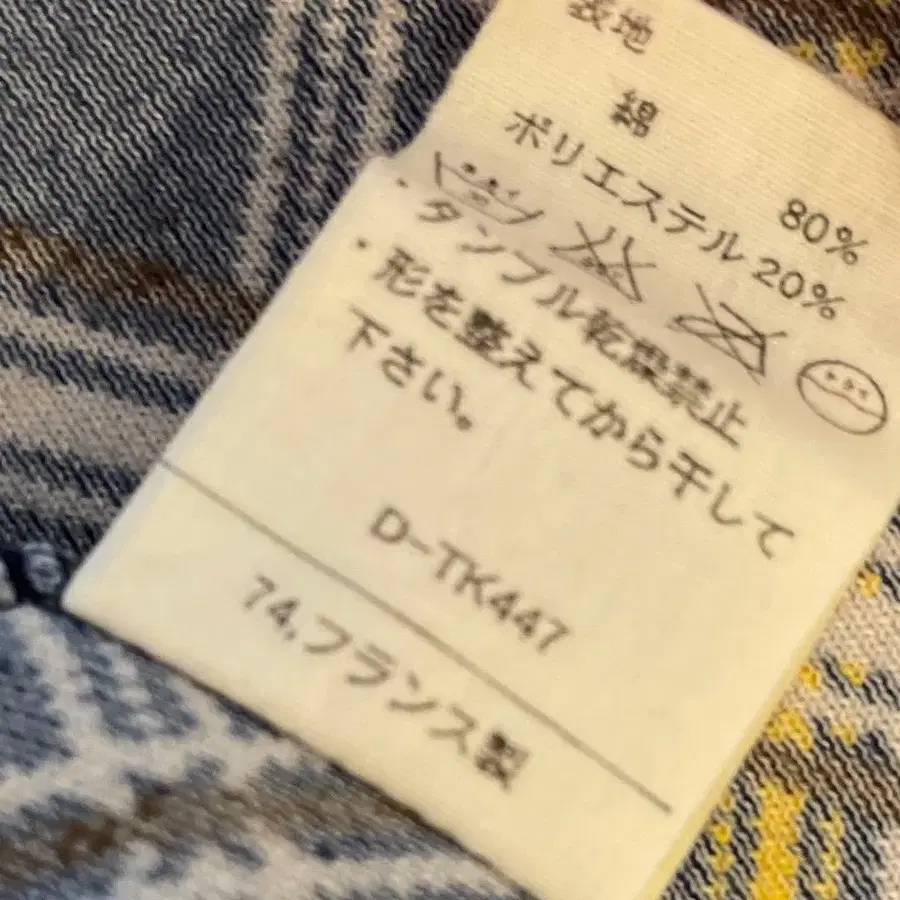 表地
綿 80%
ポリエステル 20%
・タンブル乾燥禁止
・形を整えてから干して
下さい。
D-TK447
74,フランス製